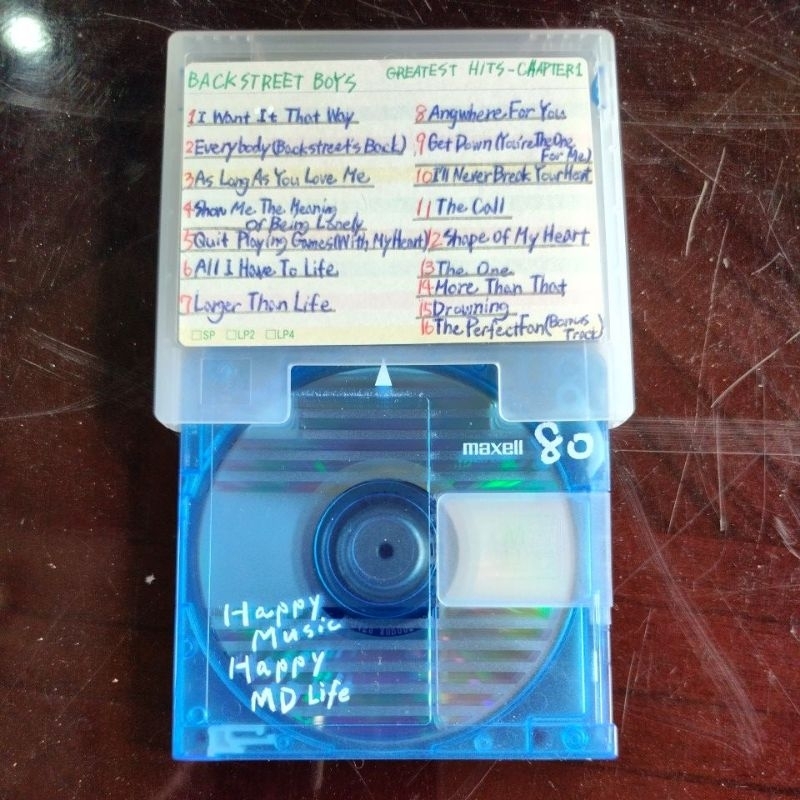 BACKSTREET BOYS GREATEST HITS-CHAPTER1
1 I Want It That Way
2 Everybody (Backstreet's Back)
3 As Long As You Love Me
4 Show Me The Meaning
of Being Lonely
5 Quit Playing Games (With My Heart)
6 All I Have To Life
7 Larger Than Life
8 Anywhere For You
9 Get Down (You're The One
For Me)
10 I'll Never Break Your Heart
11 The Call
12 Shape of My Heart
13 The One
14 More Than That
15 Drowning
16 The Perfect Fan (Bonus
Tract)
□SP □LP2 □LP4
maxell 80
Happy
Music
Happy
MD Life